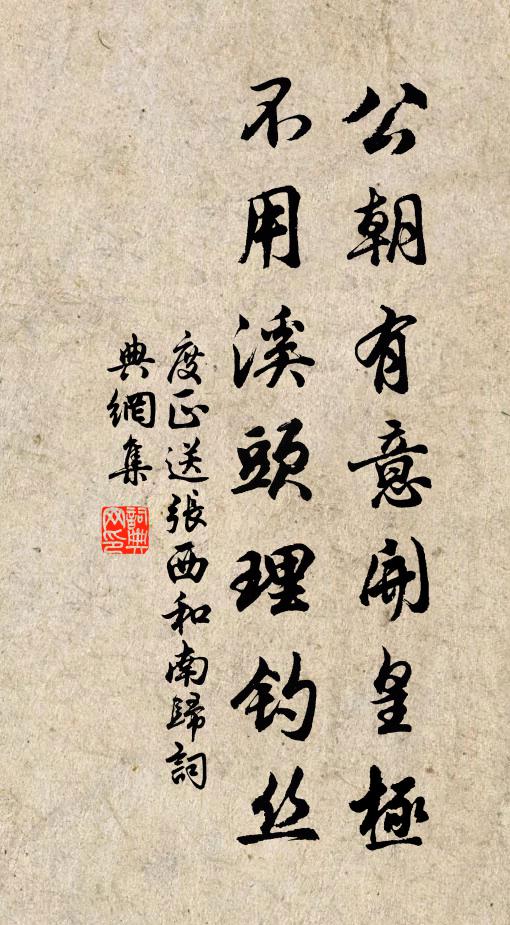 公朝有意開皇極
不用溪頭理釣丝
度正送張西和南歸詞
典網集
詞典網印